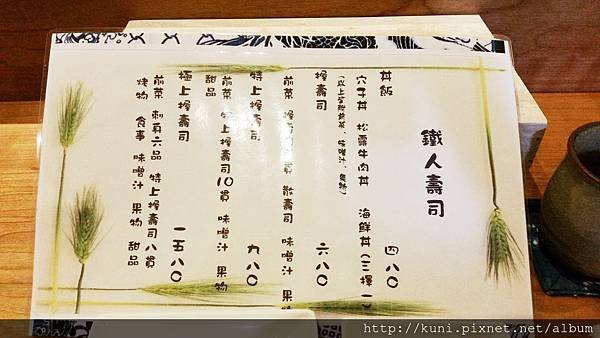 鐵人壽司
丼飯 四八〇
穴子丼 松露牛肉丼 海鮮丼(三擇一)
味噌汁、
握壽司 六八〇
前菜 握壽司 貫 散壽司 味噌汁 果物
特上握壽司 九八〇
前菜 特上握壽司10貫 味噌汁 果物
甜品
極上握壽司 一五八〇
前菜 刺身六品 特上握壽司八貫
烤物 食事 味噌汁 果物 甜品
http://kuni.pixnet.net/album